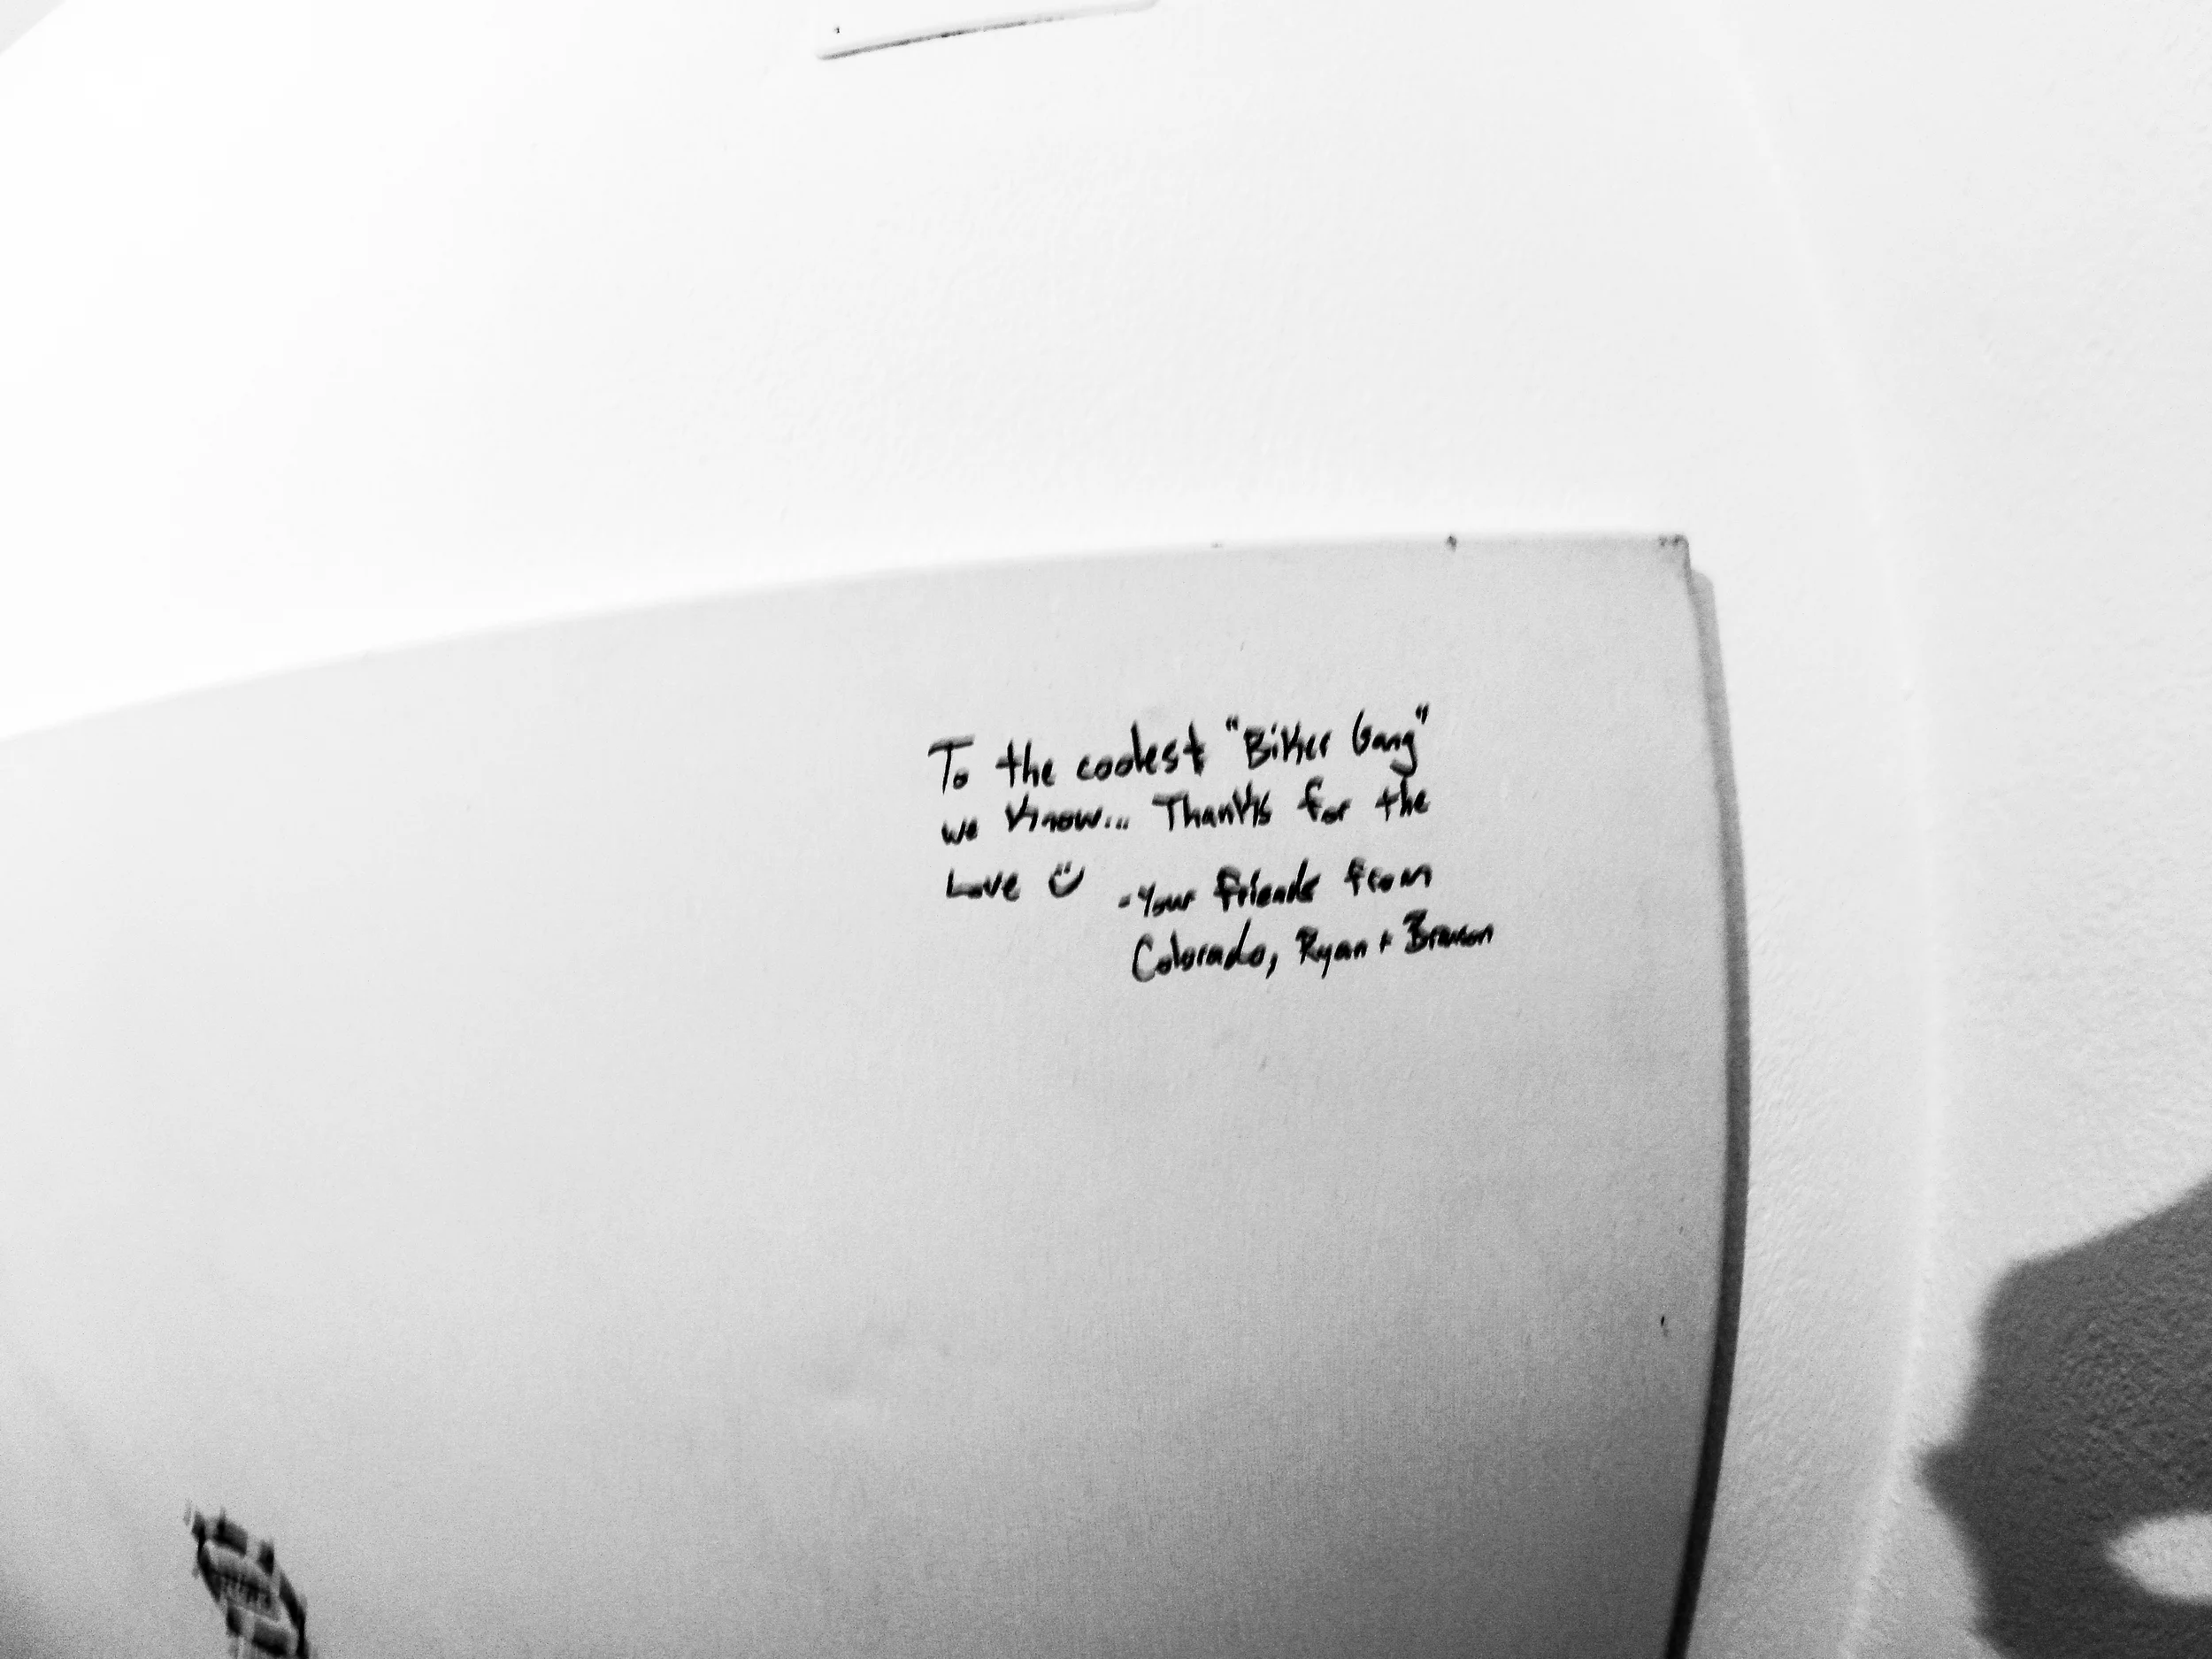 To the coolest "Biker Gang"
we know... Thanks for the
Love ☺
-Your friends from
Colorado, Ryan +